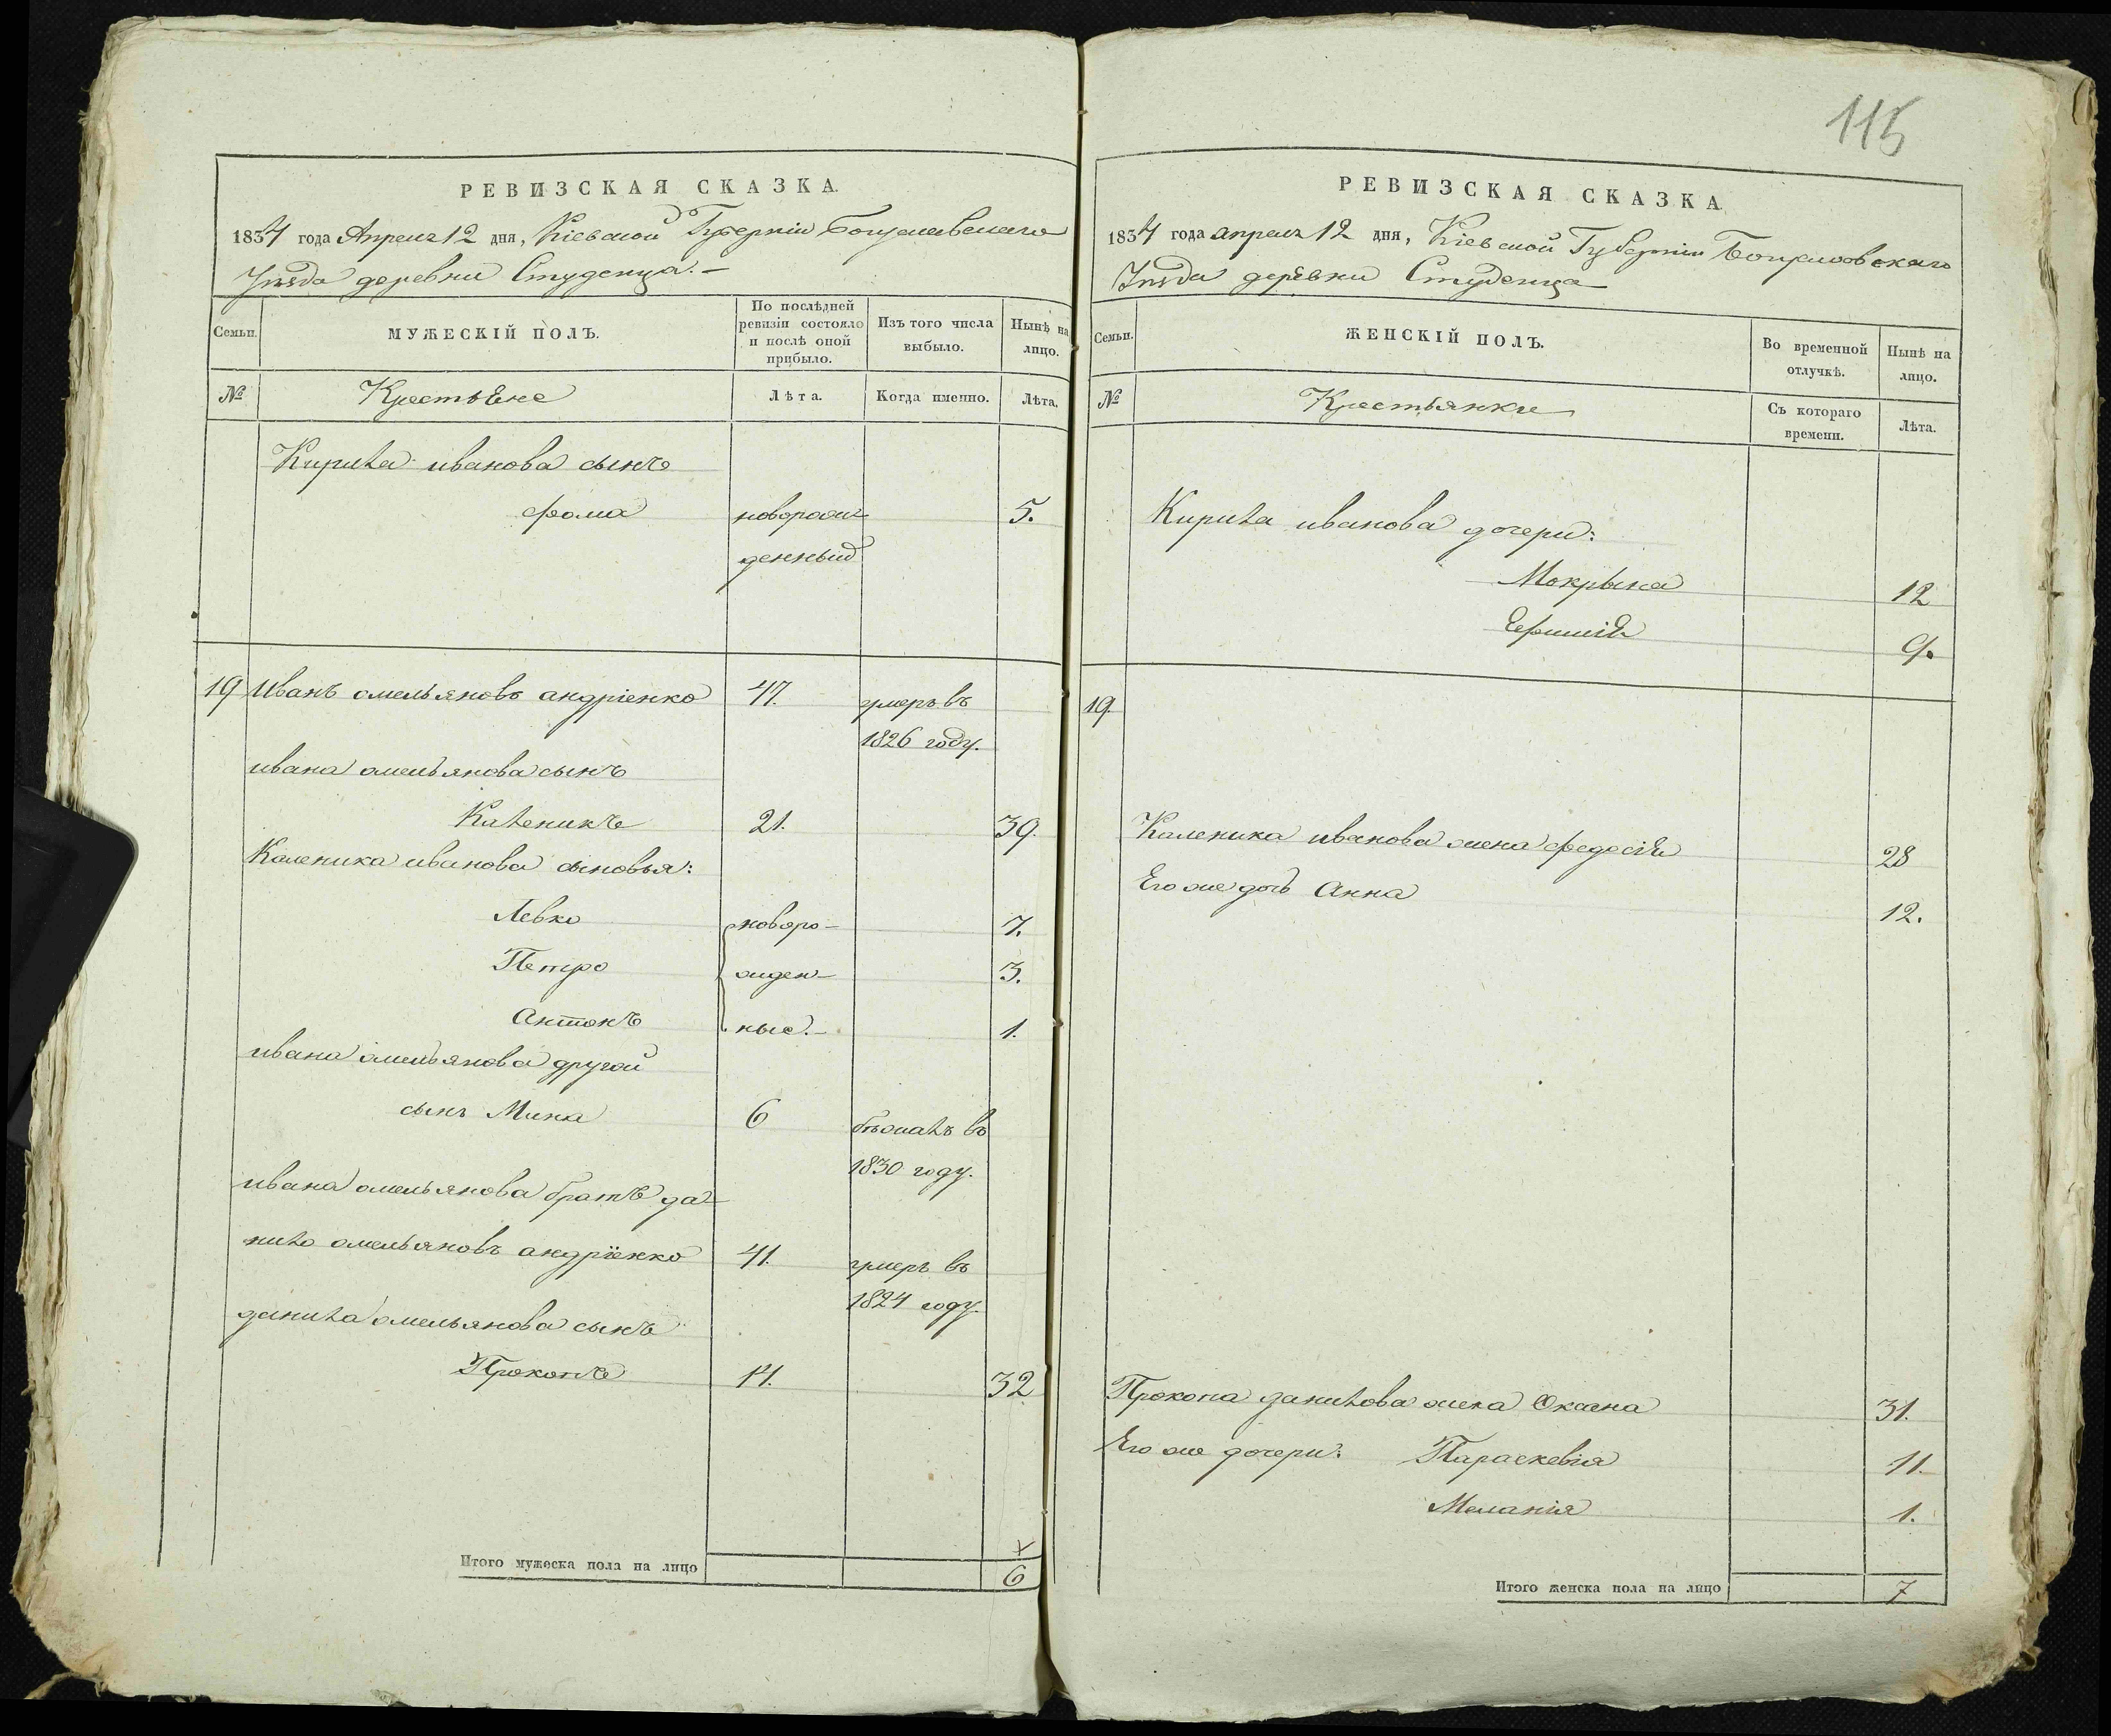 115
РЕВИЗСКАЯ СКАЗКА
1834 года Апреля 12 дня, Кіевской Губерніи Богуславскаго
Уезда деревни Студенца.-
Семьи.
МУЖЕСКІЙ ПОЛЪ.
По послѣдней
ревизіи состояло
и послѣ оной
прибыло.
Изъ того числа
выбыло.
Нынѣ на
лицо.
№
Крестьяне
Лѣта.
Когда именно.
Лѣта.
Кирила иванова сынъ
фома новорож 5.
денный
19 Иванъ омельяновъ андріенко 47. умеръ въ
1826 году.
ивана омельянова сынъ
Каленикъ 21. 39.
Каленика иванова сыновья:
Левко новоро- 7.
Петро жден- 3.
Антонъ ные.- 1.
ивана омельянова другой
сынъ Мина 6 бѣжалъ въ
1830 году.
ивана омельянова братъ да-
нило омельяновъ андріенко 41. умеръ въ
1824 году.
данила омельянова сынъ
Прокопъ 14. 32
Итого мужеска пола на лицо 6
РЕВИЗСКАЯ СКАЗКА
1834 года апреля 12 дня, Кіевской Губерніи Богуславскаго
Уезда деревни Студенца
Семьи.
ЖЕНСКІЙ ПОЛЪ.
Во временной
отлучкѣ.
Нынѣ на
лицо.
№
Крестьянки
Съ котораго
времени.
Лѣта.
Кирила иванова дочери:
Мокрына 12
Ефимія 9.
19.
Каленика иванова жена федосія 28
Его же дочь Анна 12.
Прокопа данилова жена Оксана 31.
Его же дочери: Параскевія 11.
Меланія 1.
Итого женска пола на лицо 7